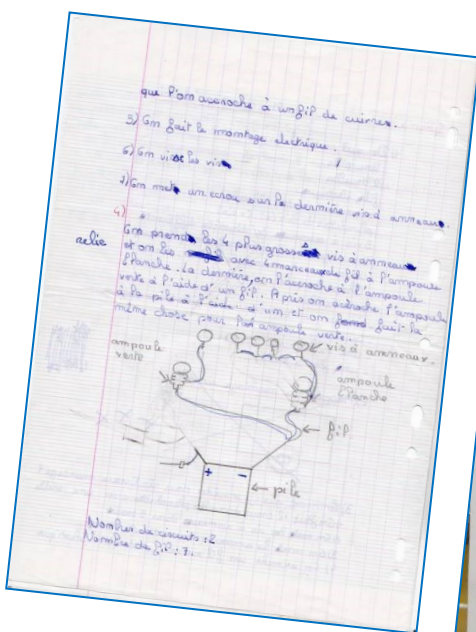 que l'on accroche à un fil de cuivre.
3) On fait le montage électrique.
6) On visse les vis
7) On met un ecrou sur la dernière vis à anneaux.
4)
On prend les 4 plus grosses vis à anneaux
relie
et on les avec 4 morceaux de fil à l'ampoule
blanche. La dernière, on l'accroche à l'ampoule
verte à l'aide d'un fil. Après on accroche l'ampoule
à la pile à l'aide d'un et on fait la
même chose pour l'ampoule verte.
ampoule
verte
vis à anneaux.
ampoule
blanche
fil
+
-
pile
Nombre de circuits : 2
Nombre de fil : 7.